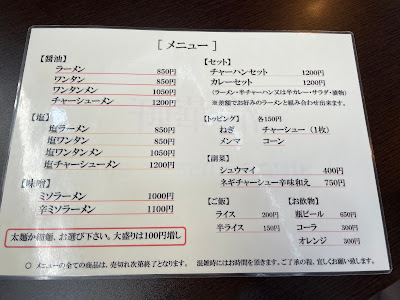 [ メニュー ]
【醤油】
ラーメン 850円
ワンタン 850円
ワンタンメン 1050円
チャーシューメン 1200円
【塩】
塩ラーメン 850円
塩ワンタン 850円
塩ワンタンメン 1050円
塩チャーシューメン 1200円
【味噌】
ミソラーメン 1000円
辛ミソラーメン 1100円
太麺か細麺、お選び下さい。大盛りは100円増し
【セット】
チャーハンセット 1200円
カレーセット 1200円
(ラーメン・半チャーハン又は半カレー・サラダ・漬物)
※差額でお好みのラーメンと組み合わせ出来ます。
【トッピング】 各150円
ねぎ チャーシュー (1枚)
メンマ コーン
【副菜】
シュウマイ 400円
ネギチャーシュー辛味和え 750円
【ご飯】
ライス 200円
半ライス 150円
【お飲物】
瓶ビール 650円
コーラ 300円
オレンジ 300円
○ メニューの全ての商品は、売切れ次第終了となります。 混雑時にはお時間を頂きます。ご了承の程、宜しくお願い致します。